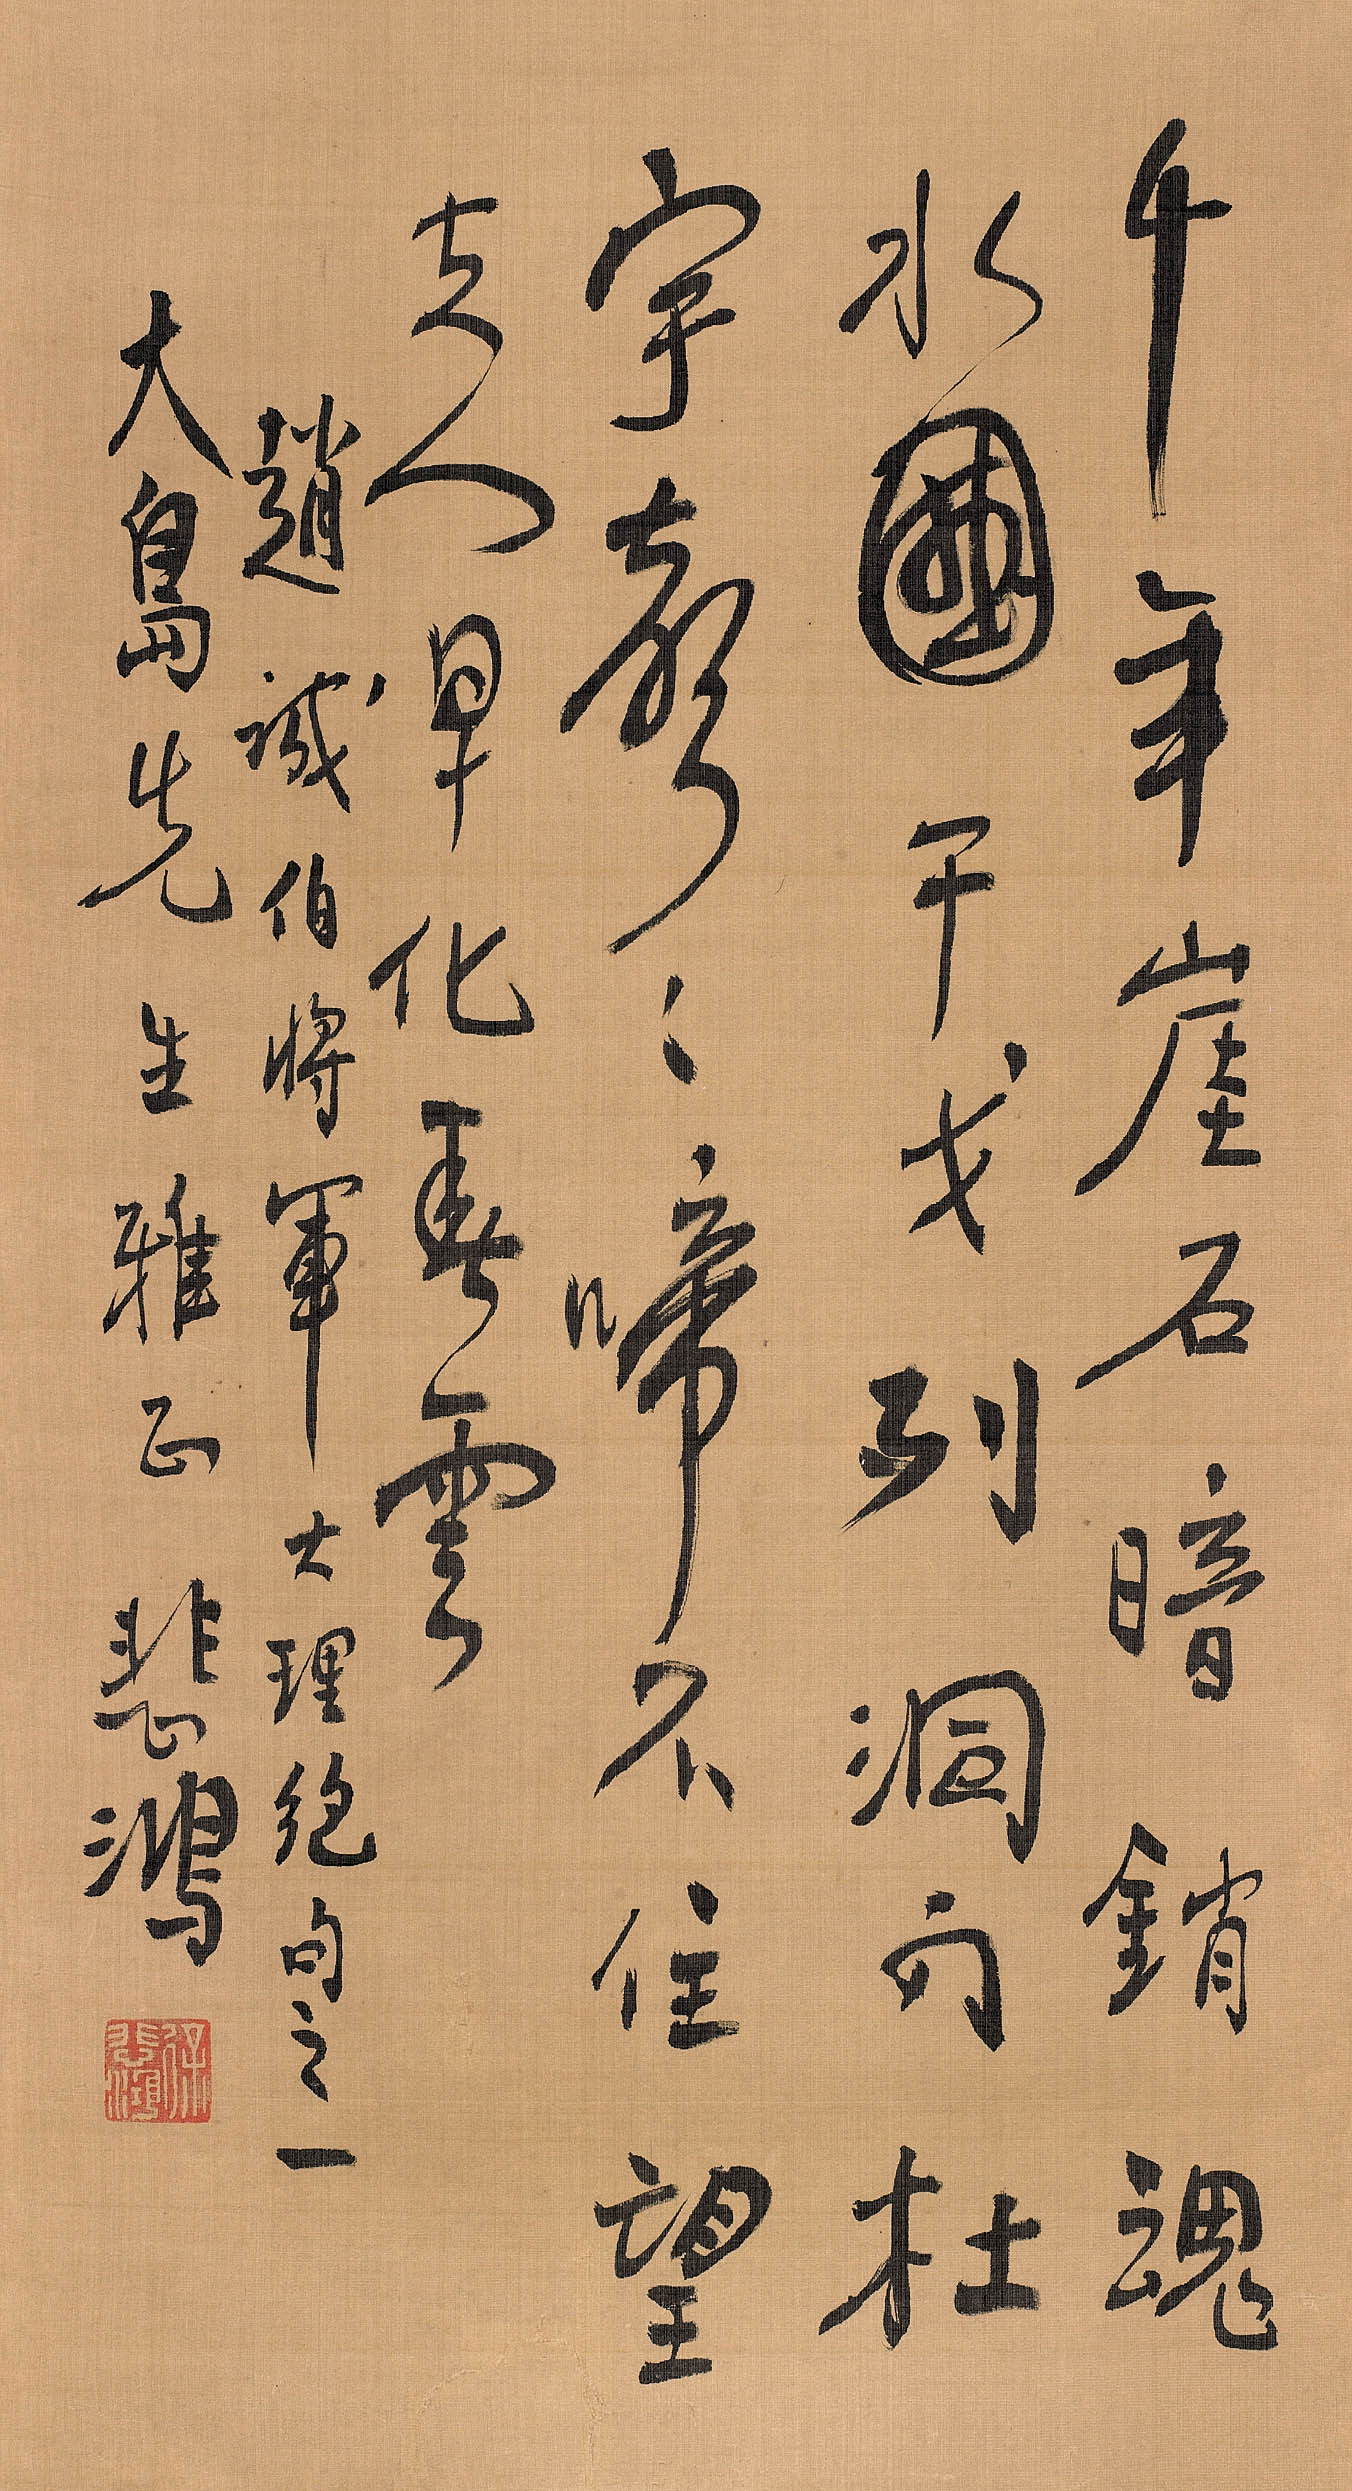 千年崖石暗銷魂
水國干戈列洞門杜
宇聲〻啼不住望
夫人早化春雲
趙誠伯將軍大理絕句之一
大島先生雅正 悲鴻
徐悲鴻